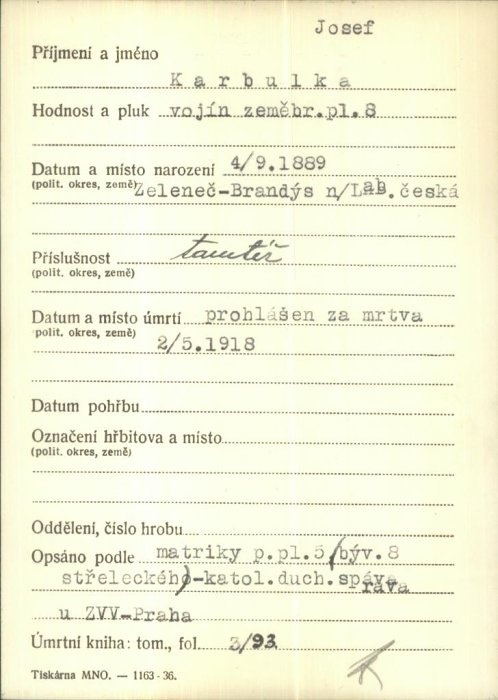 Josef
Příjmení a jméno
Karbulka
Hodnost a pluk vojín zeměbr.pl.8
Datum a místo narození 4/9.1889
(polit. okres, země) Zeleneč-Brandýs n/Lab.česká
Příslušnost tamtéž
(polit. okres, země)
Datum a místo úmrtí prohlášen za mrtva
polit. okres, země) 2/5.1918
Datum pohřbu
Označení hřbitova a místo
(polit. okres, země)
Oddělení, číslo hrobu
Opsáno podle matriky p.pl.5(býv.8
střeleckéh)-katol.duch.správa
rava
u ZVV-Praha
Úmrtní kniha: tom., fol. 3/93
Tiskárna MNO. — 1163-36.